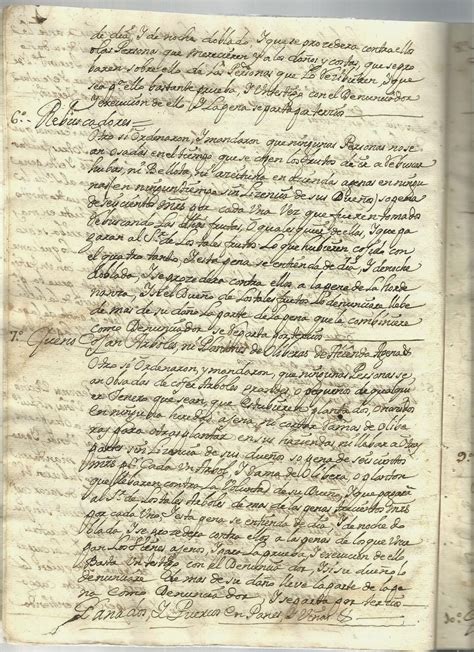 de dia, y de noche doblado, y que se procedera contra ello
o las Persona que merecieren y a la daños y costas, que se pro
baren sobre ello de las Personas que lo recibieren, y que
sea pa. ello bastante prueba, 1 testigo con el Denunciador
y execucion de ello, y la pena se parta por tercios
6º. Rebuscadores
Otro si Ordinaron, y mandaron que ningunas Personas no se
an osadas en el tiempo que se cojen los frutos de ir a rebuscar
hubas, ni Bellota, ni en haciendas agenas en ningu
nas en ningun tiempo sin Licencia de sus Dueños so pena
de seyscientos mrs por cada Una Vez que fueren tomado
rebuscando Los dichos frutos, O qualesquier de ellas, y que pa
garan al Sr. de Los tales frutos Lo que hubieren cojido con
el quatro tanto, y esta pena se entienda de dia, y de noche
doblado, y se procedera contra ellos a la pena de la horde
nanza, y si el Dueño de los tales frutos lo denunciare llebe
de mas de su daño la parte de la pena que le
como Denunciador y se parta por tercios
7º. Quienes Cojan Arboles, ni Plantones de Oliberas de Hacienda Agena
Otro si Ordenaron, y mandaron, que ningunas Personas se
an Osadas de cojer Arboles grandes, o pequeños de qualquier
Genero que sean, que estubieren plantados,
En ninguna heredad agena, ni cortar Ramas de Oliba
ras para otras plantar en sus haziendas ni llebar a Otras
partes sin Licencia de sus dueño so pena de seyscientos
mrs por Cada Un Arbol y Rama de Olibera, o planton
que llebaren contra la Voluntad de su Dueño, y que pagara
al Sr. de Los tales Arboles de mas de la pena trescientos mrs
por cada Uno y esta pena se entienda de dia, y de noche do
blado, y se procedera contra ellos a las penas de los que Usur
pan Los Vienes agenos, y para la prueba, y execucion de ello
Baste Un testigo con el Denunciador, y si su dueño lo
denunciare De mas de su daño lleve la parte de la pe
na como Denunciador, y se parta por tercios
Ganados, y Puercos En Panes, y Viñas